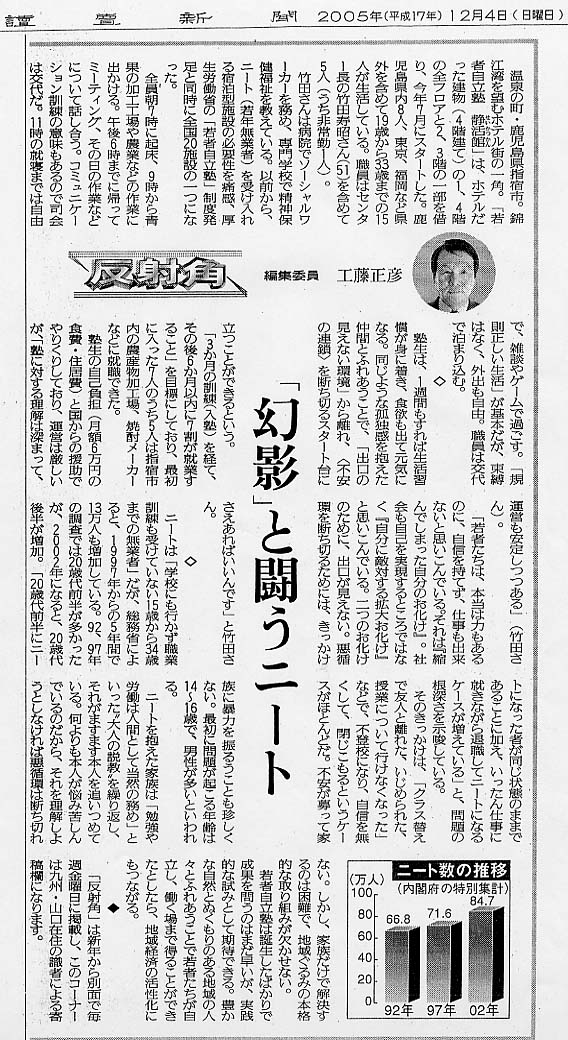 讀賣新聞 2005年(平成17年)12月4日(日曜日)
反射角
編集委員 工藤正彦
「幻影」と闘うニート
温泉の町・鹿児島県指宿市。錦
江湾を望むホテル街の一角。「若
者自立塾 静活館」は、ホテルだ
った建物(4階建て)の1、4階
の全フロアと2、3階の一部を借
り、今年7月にスタートした。鹿
児島県内8人、東京、福岡など県
外を含めて19歳から33歳までの15
人が生活している。職員はセンタ
ー長の竹田寿昭さん(51)を含めて
5人(うち非常勤1人)。
竹田さんは病院でソーシャルワ
ーカーを務め、専門学校で精神保
健福祉を教えている。以前から、
ニート(若年無業者)を受け入れ
る宿泊型施設の必要性を痛感、厚
生労働省の「若者自立塾」制度発
足と同時に全国20施設の一つにな
った。
全員朝7時に起床、9時から青
果の加工場や農業などの作業に
出かける。午後6時までに帰って
ミーティング、その日の作業など
について話し合う。コミュニケー
ション訓練の意味もあるので司会
は交代だ。11時の就寝までは自由
で、雑談やゲームで過ごす。「規
則正しい生活」が基本だが、束縛
はなく、外出も自由。職員は交代
で泊まり込む。
◇
塾生は、1週間もすれば生活習
慣が身に着き、食欲も出て元気に
なる。同じような孤独感を抱えた
仲間とふれあうことで、「出口の
見えない環境」から離れ、〈不安
の連鎖〉を断ち切るスタート台に
立つことができるという。
「3か月の訓練(入塾)を経て、
その後6か月以内に7割が就業す
ること」を目標にしており、最初
に入った7人のうち5人は指宿市
内の農産物加工場、焼酎メーカー
などに就職できた。
塾生の自己負担(月額6万円の
食費・住居費)と国からの援助で
やりくりしており、運営は厳しい
が、「塾に対する理解は深まって、
運営も安定しつつある」(竹田さ
ん)。
「若者たちは、本当は力もある
のに、自信を持てず、仕事も出来
ないと思いこんでいる。それは『縮
んでしまった自分のお化け』。社
会も自己を実現するところではな
く『自分に敵対する拡大お化け』
と思いこんでいる。二つのお化け
のために、出口が見えない。悪循
環を断ち切るためには、きっかけ
さえあればいいんです」と竹田さ
ん。
◇
ニートは「学校にも行かず職業
訓練も受けていない15歳から34歳
までの無業者」だが、総務省によ
ると、1997年からの5年間で
13万人も増加している。92、97年
の調査では20歳代前半が多かった
が、2002年になると、20歳代
後半が増加。「20歳代前半にニー
トになった者が同じ状態のままで
あることに加え、いったん仕事に
就きながら退職してニートになる
ケースが増えている」と、問題の
根深さを示唆している。
そのきっかけは、「クラス替え
で友人と離れた、いじめられた、
授業について行けなくなった」
などで、不登校になり、自信を無
くして、閉じこもるというケー
スがほとんどだ。不安が募って家
族に暴力を振るうことも珍しく
ない。最初に問題が起こる年齢は
14〜16歳で、男性が多いといわれ
る。
ニートを抱えた家族は「勉強や
労働は人間として当然の務め」と
いった〝大人の説教〟を繰り返し、
それがますます本人を追いつめて
いる。何よりも本人が悩み苦しん
でいるのだから、それを理解しよ
うとしなければ悪循環は断ち切れ
ない。しかし、家族だけで解決す
るのは困難で、地域ぐるみの本格
的な取り組みが欠かせない。
若者自立塾は誕生したばかりで
成果を問うのはまだ早いが、実践
的な試みとして期待できる。豊か
な自然とぬくもりのある地域の人
々とふれあうことで若者たちが自
立し、働く場まで得ることができ
たとしたら、地域経済の活性化に
もつながる。
◆
「反射角」は新年から別面で毎
週金曜日に掲載し、このコーナー
は九州・山口在住の識者による寄
稿欄になります。
ニート数の推移
(内閣府の特別集計)
(万人)
100
80
60
40
20
0
66.8
71.6
84.7
92年 97年 02年